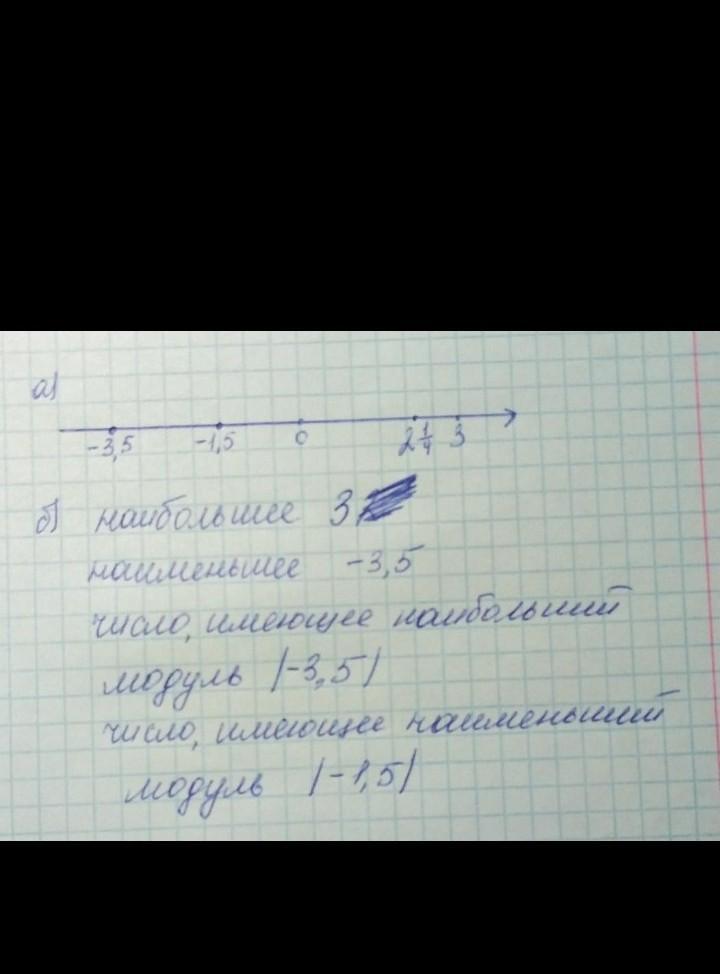 а)
-3,5 -1,5 0 2 1/4 3
б) наибольшее 3
наименьшее -3,5
число, имеющее наибольший
модуль |-3,5|
число, имеющее наименьший
модуль |-1,5|